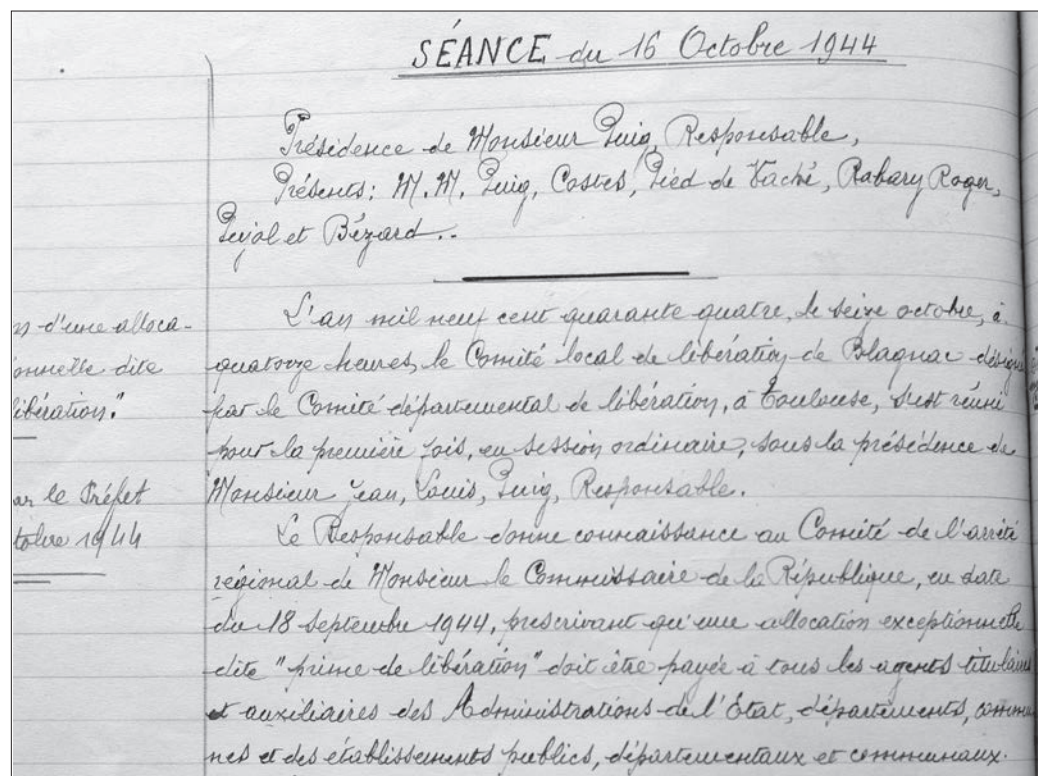 SÉANCE du 16 Octobre 1944
Présidence de Monsieur Puig, Responsable,
Présents: M.M. Puig, Costes, Pied de Vache, Rabary Roger,
Pujol et Bézard..
L'an mil neuf cent quarante quatre, le seize octobre, à
quatorze heures, le Comité local de libération de Blagnac désigné
par le Comité départemental de libération, à Toulouse, s'est réuni
pour la première fois, en session ordinaire, sous la présidence de
Monsieur Jean, Louis, Puig, Responsable.
Le Responsable donne connaissance au Comité de l'arrêté
régional de Monsieur le Commissaire de la République, en date
du 18 Septembre 1944, prescrivant qu'une allocation exceptionnelle
dite "prime de libération" doit être payée à tous les agents titulaires
et auxiliaires des Administrations de l'Etat, départements, commu-
nes et des établissements publics, départementaux et communaux.
d'une alloca-
onnelle dite
libération."
ar le Préfet
tobre 1944